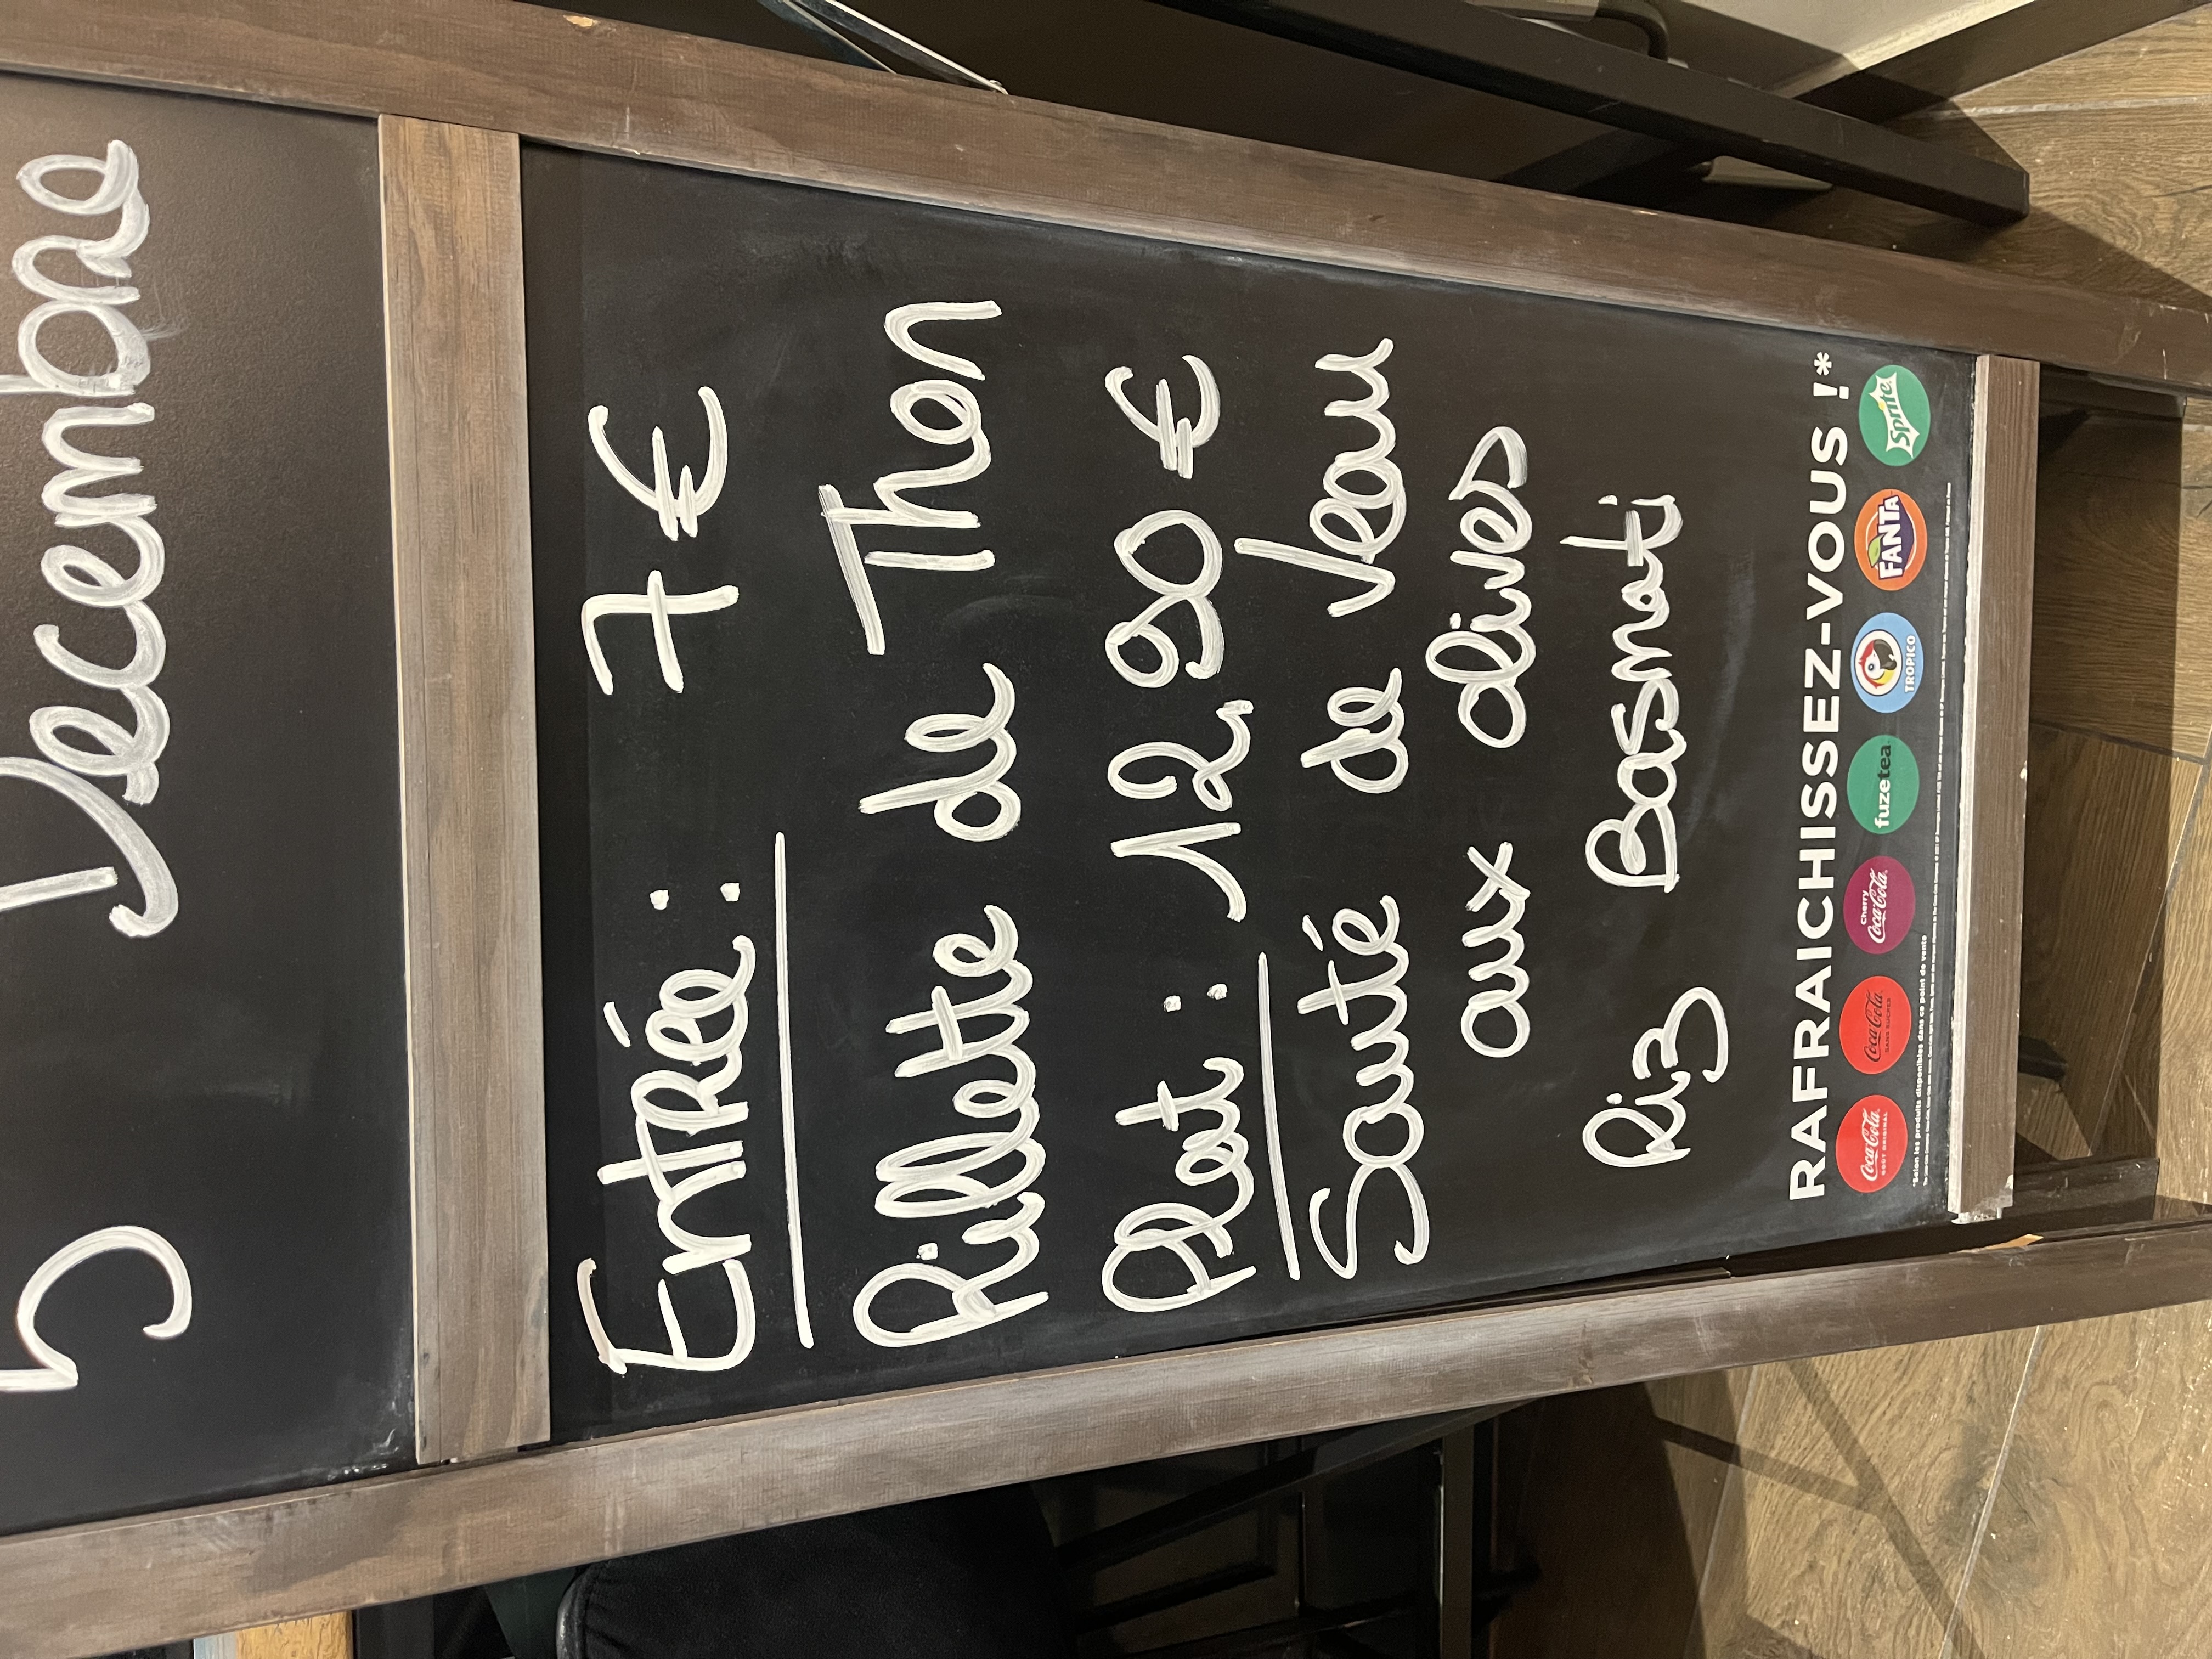 5 Decembre
Entrée : 7 €
Rillette de Thon
Plat : 12,90 €
Sauté de Veau
aux olives
Riz Basmati
RAFRAICHISSEZ-VOUS !*
Coca-Cola GOÛT ORIGINAL Coca-Cola SANS SUCRES Cherry Coca-Cola fuzetea TROPICO FANTA Sprite
*Selon les produits disponibles dans ce point de vente